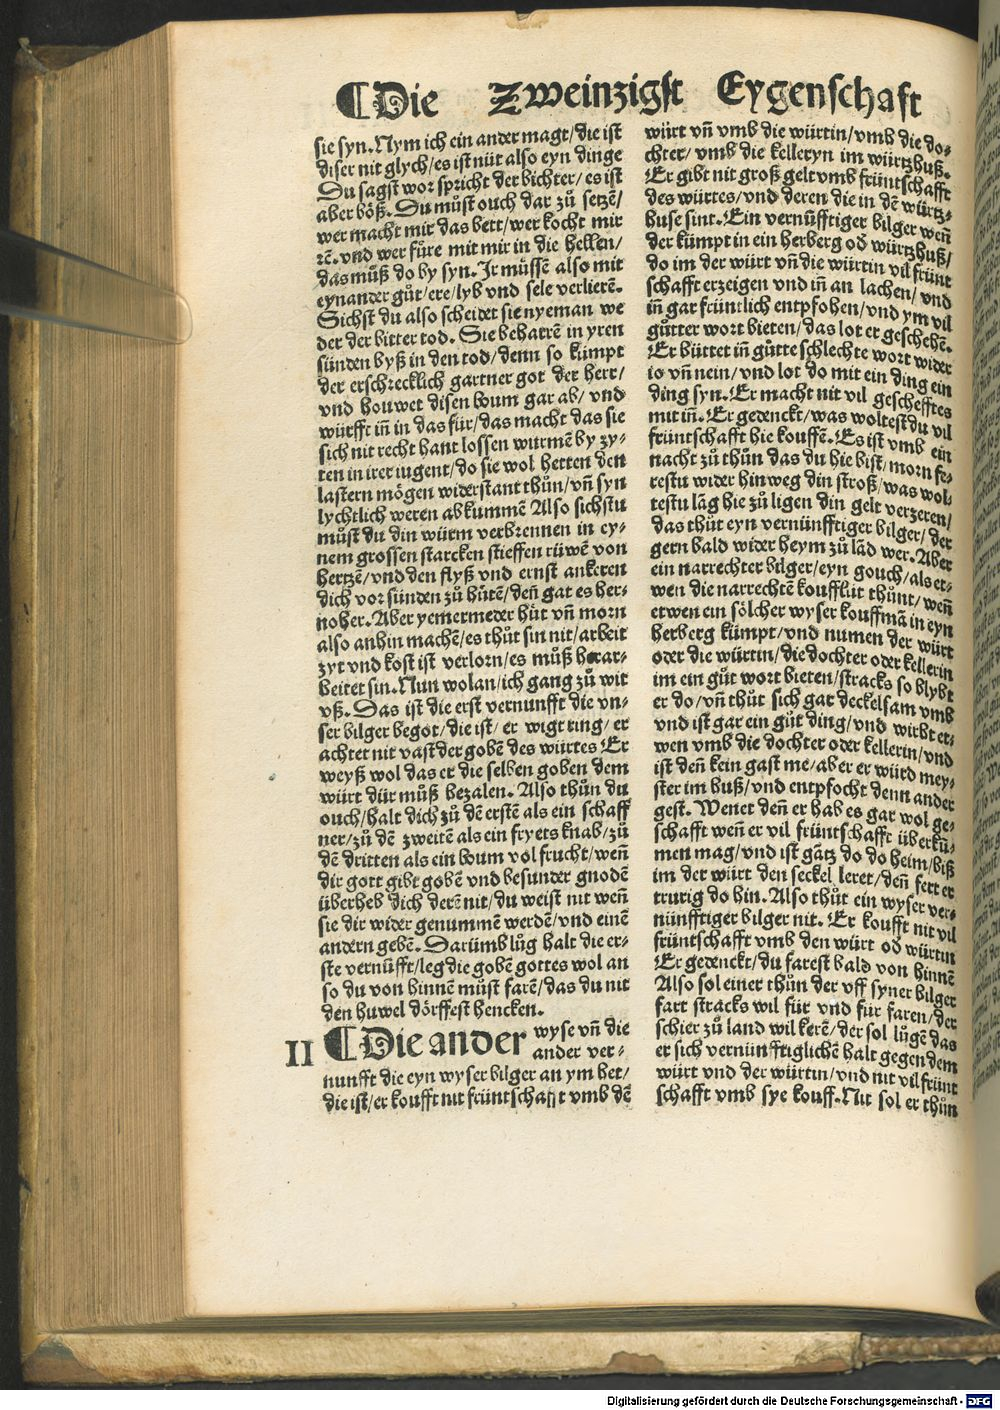 ¶Die Zweinzigst Eygenschaft
sie syn. Nym ich ein ander magt/die ist
diser nit glych/es ist nüt also eyn dinge
Du sagst wor spricht der bichter/es ist
aber böß. Du můst ouch dar zů setzē/
wer macht mir das bett/wer kocht mir
rē. vnd wer fůre mit mir in die hellen/
das můß do by syn. Ir müssē also mit
eynander gůt/ere/lyb vnd sele verlierē.
Sichst du also scheidet sie nyeman we
der der bitter tod. Sie beharrē in yren
sünden byß in den tod/denn so kümpt
der erschrecklich gartner got der herr/
vnd houwet disen boum gar ab/vnd
würfft in̄ in das für/das macht das sie
sich nit recht hant lossen wurmē by zy⸗
ten in irer iugent/do sie wol hetten den
lastern mögen widerstant thůn/vn̄ syn
lychtlich weren abkummē Also sichstu
můst du din würm verbrennen in ey⸗
nem grossen starcken stieffen rüwē von
hertzē/vnd den flyß vnd ernst ankeren
dich vor sünden zů hůtē/den̄ gat es her⸗
noher. Aber yemermeder hüt vn̄ morn
also anhin machē/es thůt sin nit/arbeit
zyt vnd kost ist verlorn/es můß herar⸗
beitet sin. Nun wolan/ich gang zů wit
vß. Das ist die erst vernunfft die vn⸗
ser bilger begot/die ist/er wigt ring/er
achtet nit vast der gobē des würtes Er
weyß wol das er die selben goben dem
würt dür můß bezalen. Also thůn du
ouch/halt dich zů dē erstē als ein schaff
ner/zů dē zweitē als ein fryets knab/zů
dē dritten als ein boum vol frucht/wen̄
dir gott gibt gobē vnd besunder gnodē
überheb dich derē nit/du weist nit wen̄
sie dir wider genummē werdē/vnd einē
andern gebē. Darümb lůg halt die er⸗
ste vernüfft/leg die gobē gottes wol an
so du von binnē můst farē/das du nit
den huwel dörffest hencken.
II ¶Die ander wyse vn̄ die
ander ver⸗
nunfft die eyn wyser bilger an ym het/
die ist/er koufft nit früntschafft vmb dē
würt vn̄ vmb die würtin/vmb die do⸗
chter/vmb die kelleryn im würtzhuß.
Er gibt nit groß gelt vmb früntschafft
des würtes/vnd deren die in dē würtz⸗
huse sint. Ein vernüfftiger bilger wen̄
der kümpt in ein herberg od würtzhuß/
do im der würt vn̄ die würtin vil frünt
schafft erzeigen vnd in̄ an lachen/vnd
in̄ gar früntlich entpfohen/vnd ym vil
gůtter wort bieten/das lot er geschehē.
Er büttet in̄ gůtte schlechte wort wider
io vn̄ nein/vnd lot do mit ein ding ein
ding syn. Er macht nit vil geschefftes
mit in̄. Er gedenckt/was woltest du vil
früntschafft hie kouffē. Es ist vmb ein
nacht zů thůn das du hie bist/morn fe⸗
restu wider hinweg din stroß/was wol
testu lāg hie zů ligen din gelt verzeren/
das thůt eyn vernünfftiger bilger/der
gern bald wider heym zů lād wer. Aber
ein narrechter bilger/eyn gouch/als et⸗
wen die narrechtē koufflüt thůnt/wen̄
etwen ein sölcher wyser kouffmā in eyn
herberg kümpt/vnd numen der würt
oder die würtin/die dochter oder kellerin
im ein gůt wort bieten/stracks so blybt
er do/vn̄ thůt sich gar deckelsam vmb
vnd ist gar ein gůt ding/vnd wirbt et⸗
wen vmb die dochter oder kellerin/vnd
ist den̄ kein gast me/aber er würd mey⸗
ster im huß/vnd entpfocht denn ander
gest. Wenet den̄ er hab es gar wol ge⸗
schafft wen̄ er vil früntschafft überkü⸗
men mag/vnd ist gātz do do heim/biß
im der würt den seckel leret/den̄ fert er
trurig do hin. Also thůt ein wyser ver⸗
nünfftiger bilger nit. Er koufft nit vil
früntschafft vmb den würt od würtin
Er gedenckt/du farest bald von binnē
Also sol einer thůn der vff syner bilger
fart stracks wil für vnd für faren/der
schier zů land wil kerē/der sol lůgē das
er sich vernünfftiglichē halt gegen dem
würt vnd der würtin/vnd nit vil frünt
schafft vmb sye kouff. Nit sol er thůn
Digitalisierung gefördert durch die Deutsche Forschungsgemeinschaft - DFG